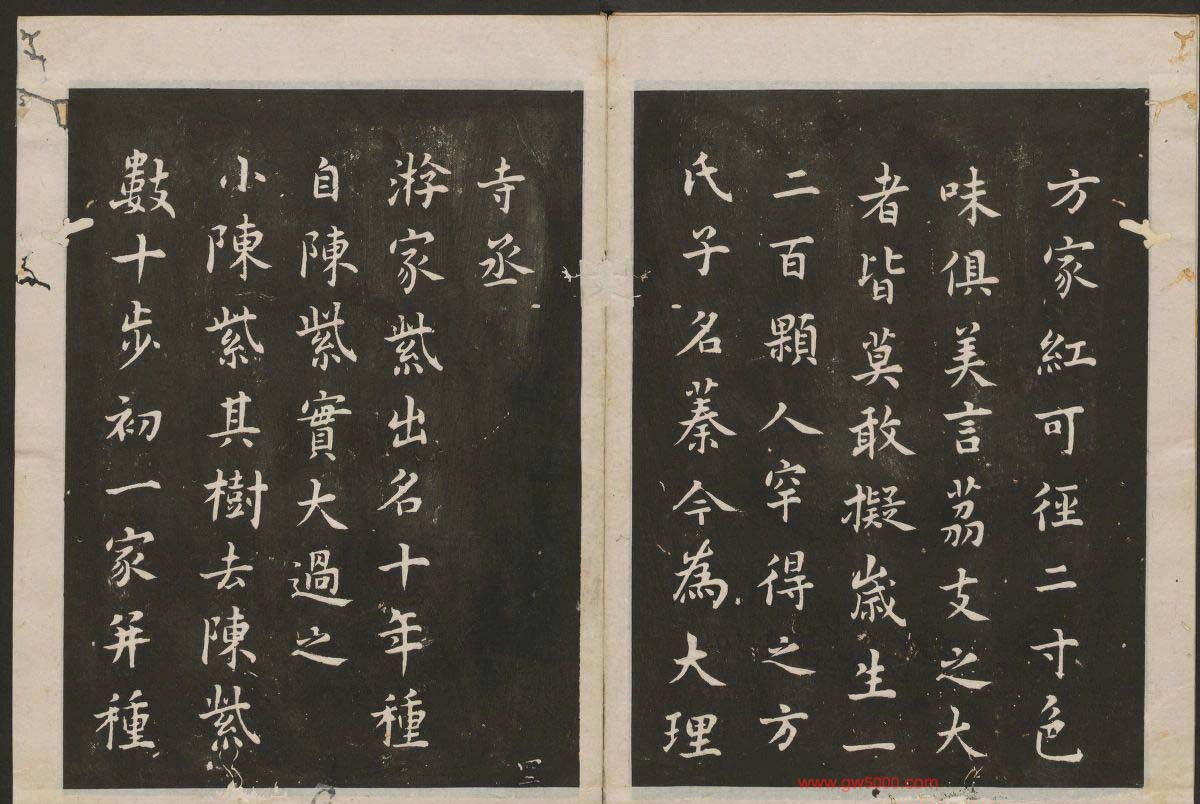 方家紅可徑二寸色
味俱美言荔支之大
者皆莫敢擬嵗生一
二百顆人罕得之方
氏子名蓁今為大理
寺丞
游家紫出名十年種
自陳紫實大過之
小陳紫其樹去陳紫
數十步初一家并種
四二
www.gw5000.com